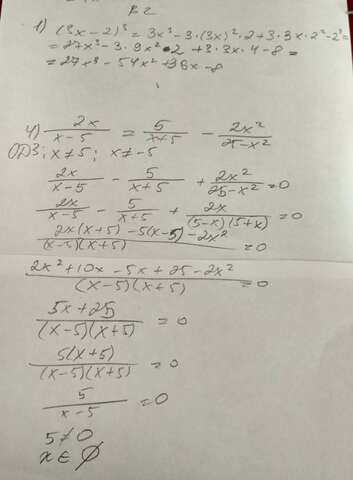 В 2
1) (3x - 2)³ = 3x³ - 3·(3x)²·2 + 3·3x·2² - 2³ =
= 27x³ - 3·9x²·2 + 3·3x·4 - 8 =
= 27x³ - 54x² + 36x - 8
4) 2x/(x-5) = 5/(x+5) - 2x²/(25-x²)
ОДЗ: x ≠ 5; x ≠ -5
2x/(x-5) - 5/(x+5) + 2x²/(25-x²) = 0
2x/(x-5) - 5/(x+5) + 2x/((5-x)(5+x)) = 0
(2x(x+5) - 5(x-5) - 2x²)/((x-5)(x+5)) = 0
(2x² + 10x - 5x + 25 - 2x²)/((x-5)(x+5)) = 0
(5x+25)/((x-5)(x+5)) = 0
5(x+5)/((x-5)(x+5)) = 0
5/(x-5) = 0
5 ≠ 0
x ∈ ∅